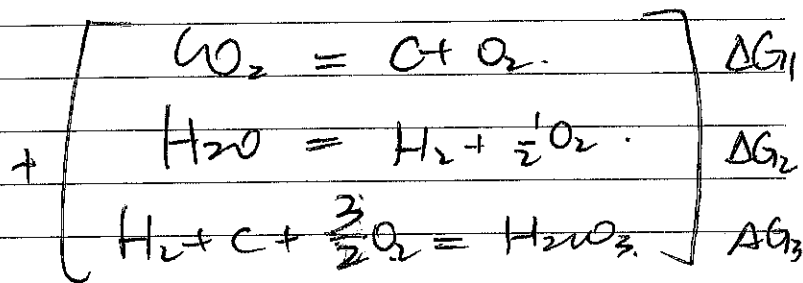 CO₂ = C + O₂. ΔG₁
+ H₂O = H₂ + ½O₂. ΔG₂
H₂ + C + 3/2 O₂ = H₂CO₃. ΔG₃